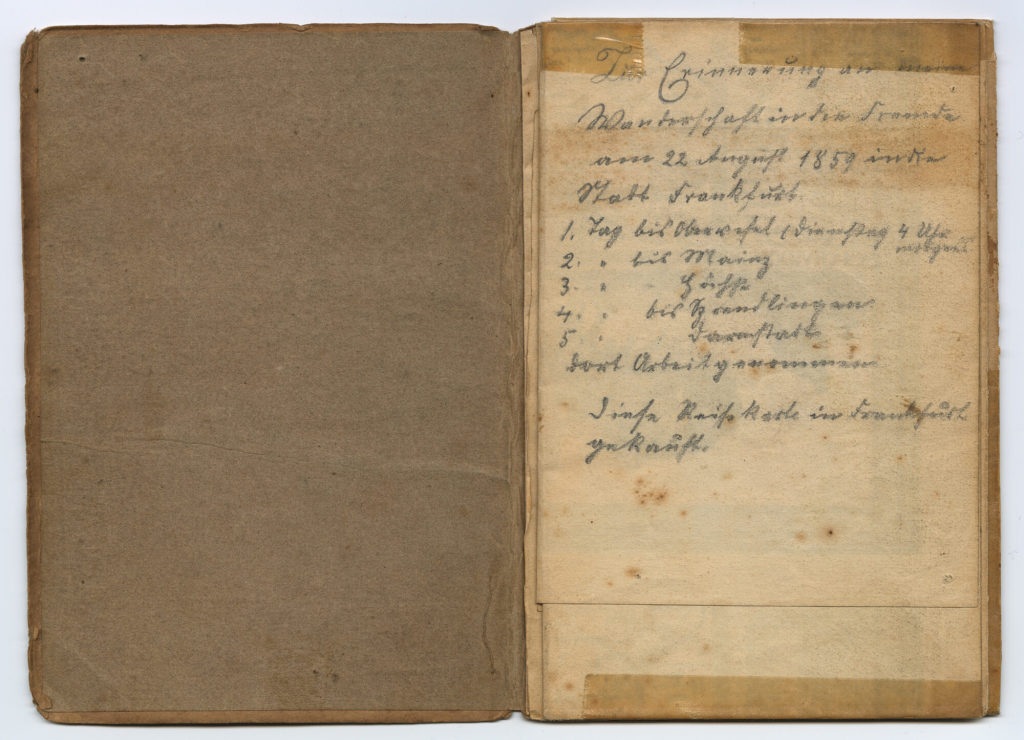 Zur Erinnerung an meine
Wanderschaft in die Fremde
am 22 August 1859 in die
Stadt Frankfurt.
1. Tag bis Oberwesel (Dienstag 4 Uhr
morgens
2. " bis Mainz
3. " Höchst
4. " bis Sprendlingen
5 " Darmstadt
dort Arbeit genommen
Diese Reisekarte in Frankfurt
gekauft.